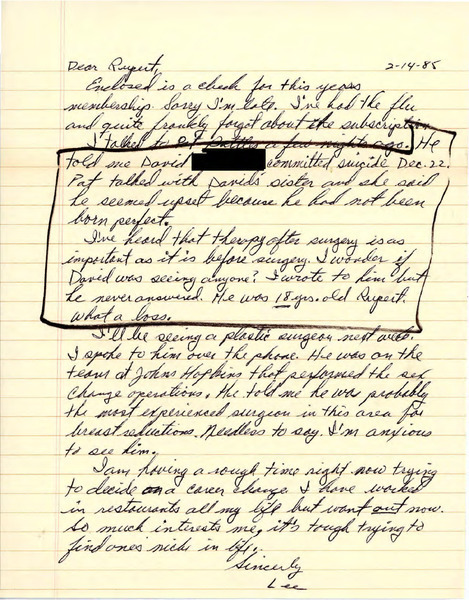 Dear Rupert, 2-14-85
Enclosed is a check for this years
membership. Sorry I'm late. I've had the flu
and quite frankly forgot about the subscription.
I talked to a few nights ago. He
told me David committed suicide Dec. 22.
Pat talked with David's sister and she said
he seemed upset because he had not been
born perfect.
I've heard that therapy after surgery is as
important as it is before surgery. I wonder if
David was seeing anyone? I wrote to him but
he never answered. He was 18 yrs. old Rupert.
What a loss.
I'll be seeing a plastic surgeon next week.
I spoke to him over the phone. He was on the
team at Johns Hopkins that performed the sex
change operations. He told me he was probably
the most experienced surgeon in this area for
breast reductions. Needless to say, I'm anxious
to see him.
I am having a rough time right now trying
to decide on a career change. I have worked
in restaurants all my life but want out now.
So much interests me, it's tough trying to
find ones nich in life.
Sincerly
Lee